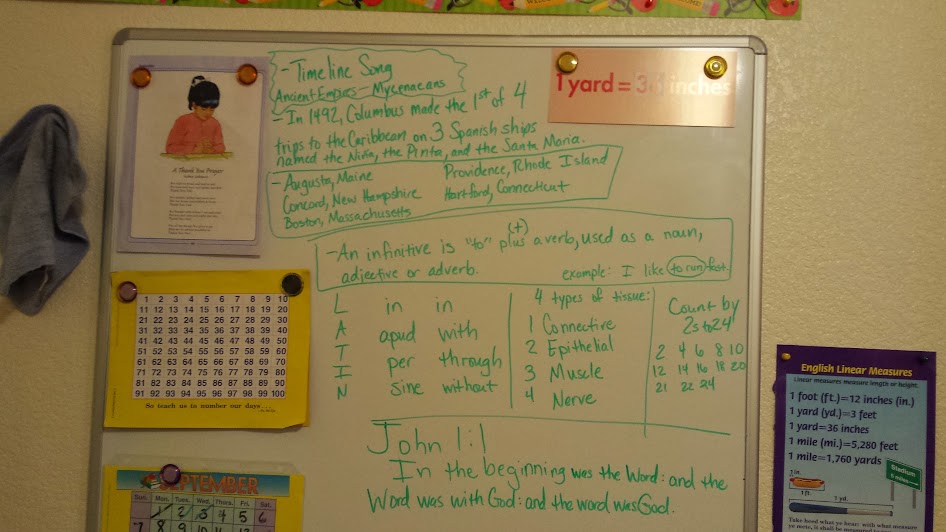 WELCOME
- Timeline Song
Ancient Empires - Mycenaeans
- In 1492, Columbus made the 1st of 4
trips to the Caribbean on 3 Spanish ships
named the Niña, the Pinta, and the Santa Maria.
- Augusta, Maine
Concord, New Hampshire
Boston, Massachusetts
Providence, Rhode Island
Hartford, Connecticut
1 yard = 36 inches
A Thank You Prayer
- An infinitive is "to" plus (+) a verb, used as a noun,
adjective or adverb.
example: I like to run fast.
L in in
A apud with
T
I per through
N sine without
4 types of tissue:
1 Connective
2 Epithelial
3 Muscle
4 Nerve
Count by
2s to 24
2 4 6 8 10
12 14 16 18 20
21 22 24
John 1:1
In the beginning was the Word: and the
Word was with God: and the word was God.
1 2 3 4 5 6 7 8 9 10
11 12 13 14 15 16 17 18 19 20
21 22 23 24 25 26 27 28 29 30
31 32 33 34 35 36 37 38 39 40
41 42 43 44 45 46 47 48 49 50
51 52 53 54 55 56 57 58 59 60
61 62 63 64 65 66 67 68 69 70
71 72 73 74 75 76 77 78 79 80
81 82 83 84 85 86 87 88 89 90
91 92 93 94 95 96 97 98 99 100
So teach us to number our days
SEPTEMBER
Sun. Mon. Tues. Wed. Thurs. Fri. Sat.
1 2 3 4 5 6
7 8 9 10 11 12
English Linear Measures
Linear measures measure length or height.
1 foot (ft.)=12 inches (in.)
1 yard (yd.)=3 feet
1 yard=36 inches
1 mile (mi.)=5,280 feet
1 mile=1,760 yards
Stadium
1 in.
1 ft.
1 yd.
Take heed what ye hear: with what measure